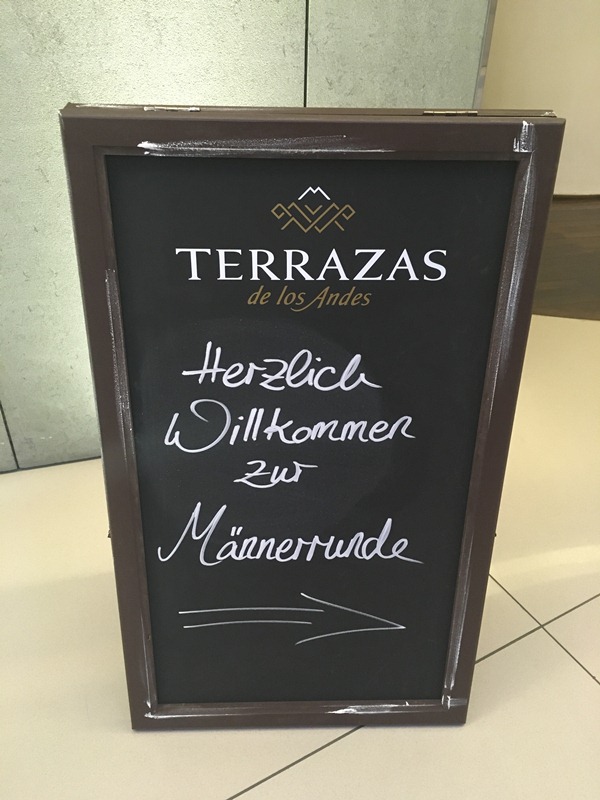 TERRAZAS
de los Andes
Herzlich
Willkommen
zur
Männerrunde